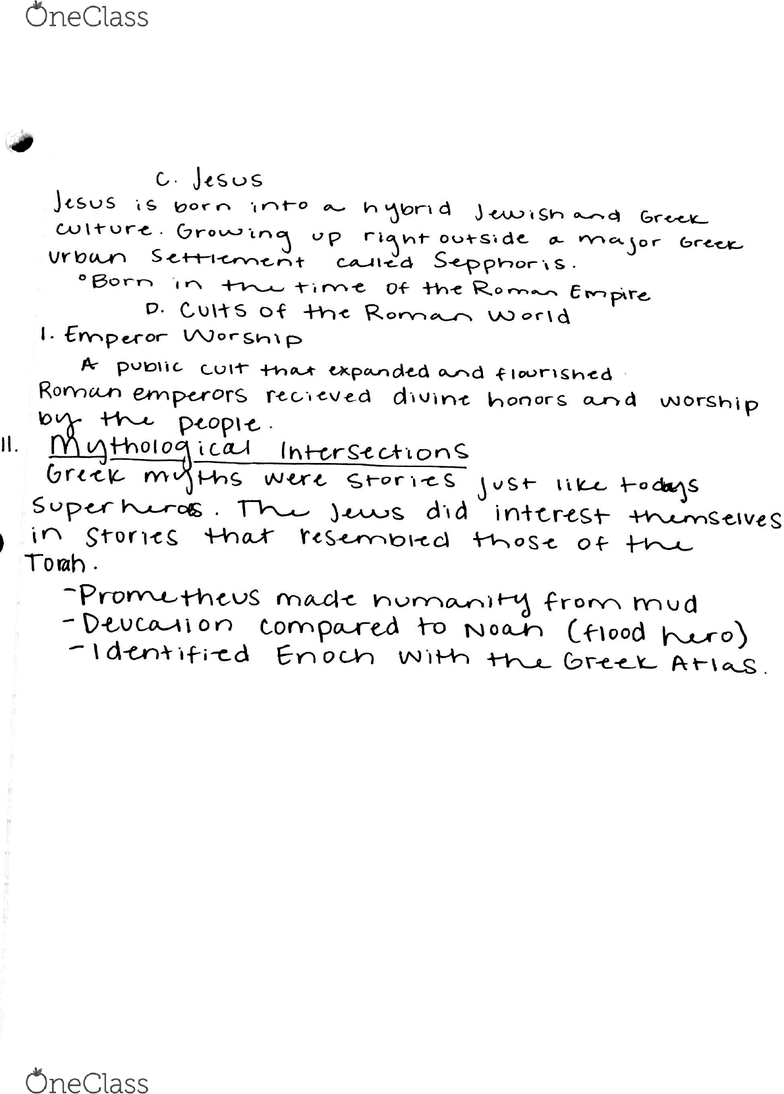 OneClass
C. Jesus
Jesus is born into a hybrid Jewish and Greek
culture. Growing up right outside a major Greek
urban settlement called Sepphoris.
°Born in the time of the Roman Empire
D. Cults of the Roman World
1. Emperor Worship
A public cult that expanded and flourished.
Roman emperors recieved divine honors and worship
by the people.
II. Mythological Intersections
Greek myths were stories just like todays
superheros. The Jews did interest themselves
in stories that resembled those of the
Torah.
-Prometheus made humanity from mud
-Deucalion compared to Noah (flood hero)
-Identified Enoch with the Greek Atlas.
OneClass